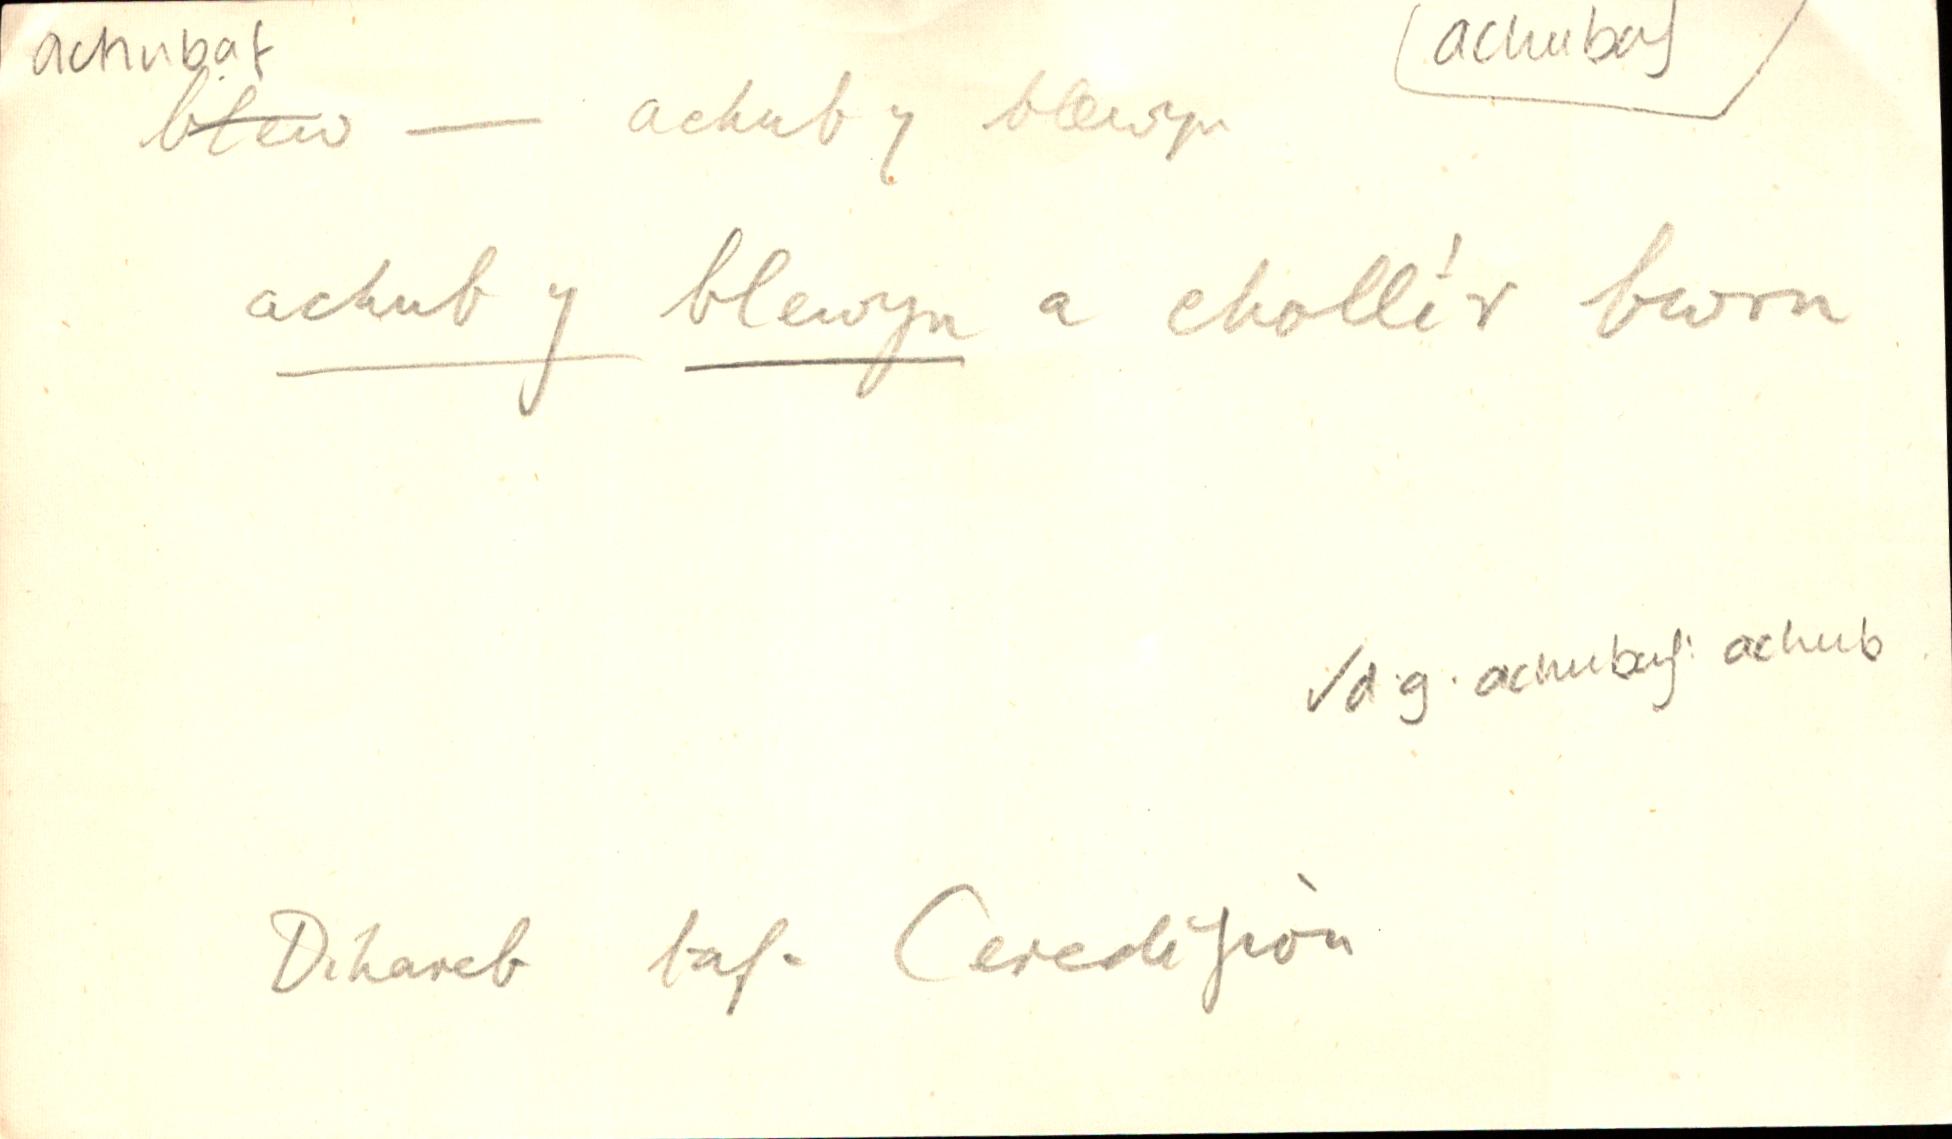 achubaf
(achubaf)
blew — achub y blewyn
achub y blewyn a cholli'r bwrn
√d.g. achubaf: achub
Dihareb taf. Ceredigion